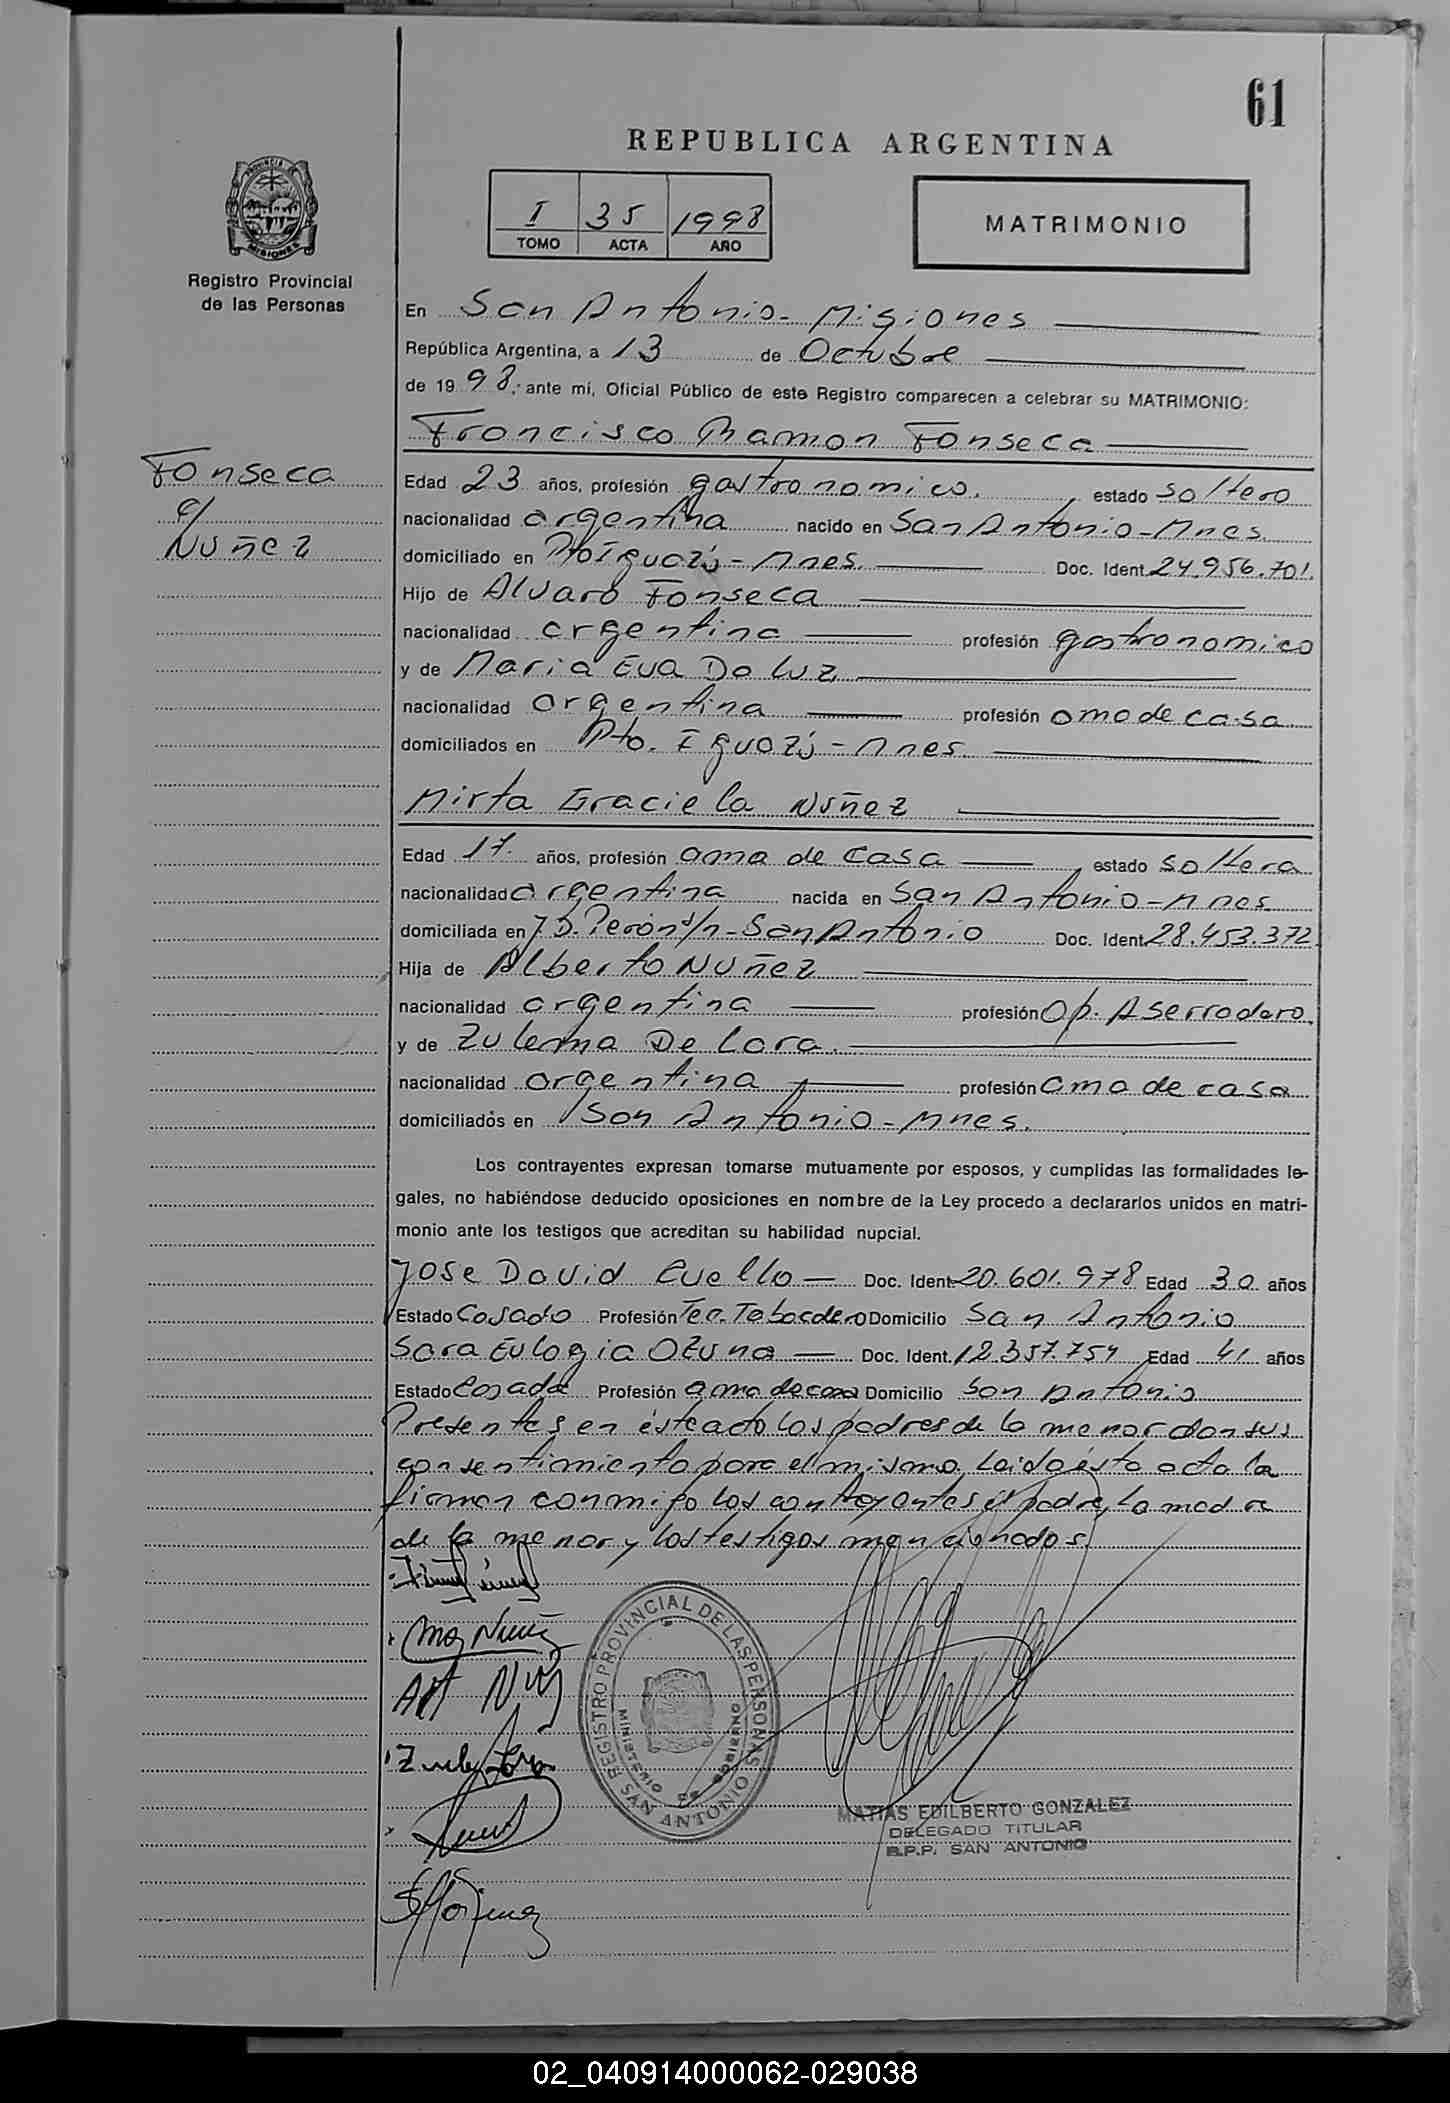 61
REPUBLICA ARGENTINA
I 35 1998
TOMO ACTA AÑO
MATRIMONIO
PROVINCIA DE MISIONES
Registro Provincial
de las Personas
En San Antonio - Misiones
República Argentina, a 13 de Octubre
de 1998, ante mí, Oficial Público de este Registro comparecen a celebrar su MATRIMONIO:
Francisco Ramon Fonseca
Fonseca
c/
Nuñez
Edad 23 años, profesión gastronomico. estado soltero
nacionalidad argentina nacido en San Antonio - Mnes.
domiciliado en Pto Iguazú - Mnes. Doc. Ident. 24.956.701.
Hijo de Alvaro Fonseca
nacionalidad argentina profesión gastronomico
y de Maria Eva Da Luz
nacionalidad argentina profesión ama de casa
domiciliados en Pto. Iguazú - Mnes.
Mirta Graciela Nuñez
Edad 17 años, profesión ama de casa estado soltera
nacionalidad argentina nacida en San Antonio - Mnes.
domiciliada en J. D. Perón s/n - San Antonio Doc. Ident. 28.453.372.
Hija de Alberto Nuñez
nacionalidad argentina profesión Op. Aserradero.
y de Zulema De Lara
nacionalidad argentina profesión ama de casa
domiciliados en San Antonio - Mnes.
Los contrayentes expresan tomarse mutuamente por esposos, y cumplidas las formalidades le-
gales, no habiéndose deducido oposiciones en nombre de la Ley procedo a declararlos unidos en matri-
monio ante los testigos que acreditan su habilidad nupcial.
Jose David Cuello Doc. Ident. 20.601.978 Edad 30 años
Estado Casado Profesión Tec. Domicilio San Antonio
Sara Eulogia Doc. Ident. 12.357.754 Edad 41 años
Estado Casada Profesión ama de casa Domicilio San Antonio
Presentes en éste acto los padres de la menor dan sus
consentimiento para el mismo, Leido ésta acta la
firman conmigo los contrayentes el padre, la madre
de la menor y los testigos mencionados.
REGISTRO PROVINCIAL DE LAS PERSONAS
MINISTERIO DE GOBIERNO
SAN ANTONIO
MATIAS EDILBERTO GONZALEZ
DELEGADO TITULAR
R.P.P. SAN ANTONIO
02_040914000062-029038